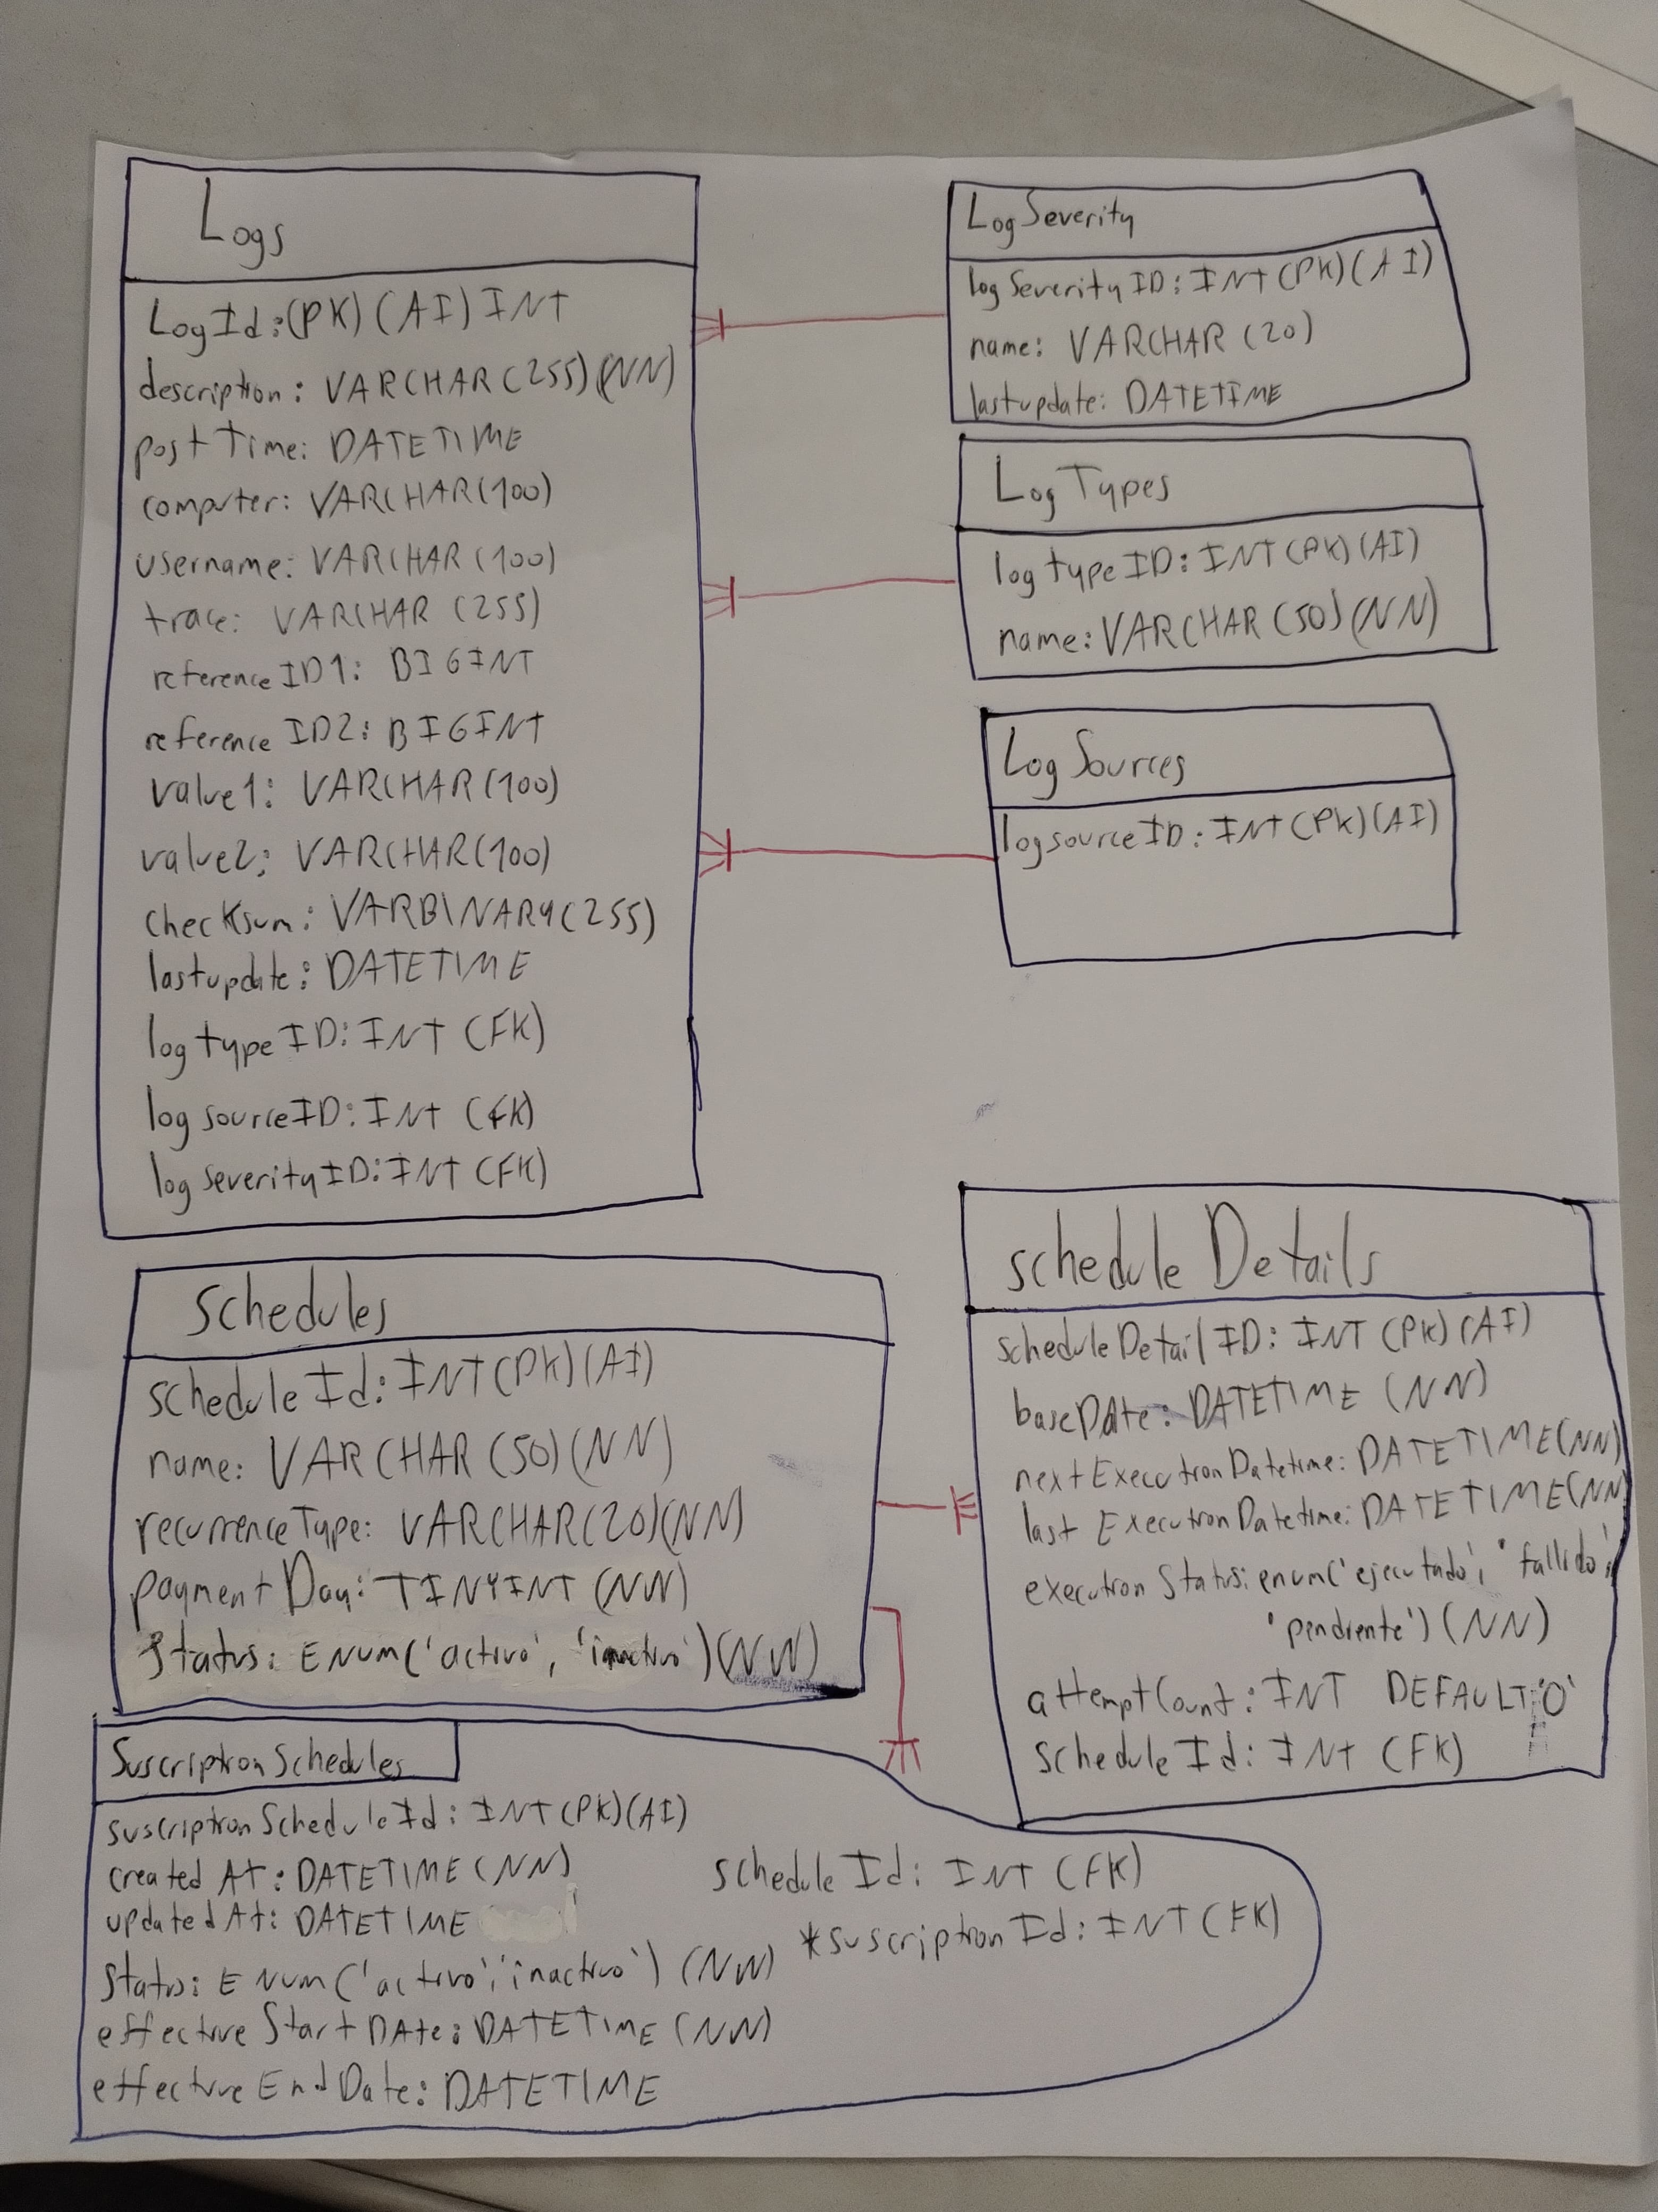 Logs
LogId:(PK)(AI)INT
description: VARCHAR(255)(NN)
postTime: DATETIME
computer: VARCHAR(100)
username: VARCHAR(100)
trace: VARCHAR (255)
referenceID1: BIGINT
referenceID2: BIGINT
value1: VARCHAR(100)
value2: VARCHAR(100)
checksum: VARBINARY(255)
lastupdate: DATETIME
logtypeID: INT (FK)
logsourceID: INT (FK)
logseverityID: INT (FK)
LogSeverity
logSeverityID: INT(PK)(AI)
name: VARCHAR (20)
lastupdate: DATETIME
LogTypes
logtypeID: INT(PK)(AI)
name: VARCHAR (50)(NN)
LogSources
logsourceID: INT(PK)(AI)
Schedules
scheduleId: INT(PK)(AI)
name: VARCHAR (50)(NN)
recurrenceType: VARCHAR(20)(NN)
paymentDay: TINYINT (NN)
Status: ENUM('activo', 'inactivo')(NN)
schedule Details
scheduleDetailID: INT (PK)(AI)
baseDate: DATETIME (NN)
nextExecutionDatetime: DATETIME(NN)
last ExecutionDatetime: DATETIME(NN)
execution Status: enum('ejecutado', 'fallido',
'pendiente')(NN)
attemptCount: INT DEFAULT '0'
scheduleId: INT (FK)
SuscriptionSchedules
suscriptionScheduleId: INT(PK)(AI)
created At: DATETIME(NN)
updatedAt: DATETIME
Status: ENUM('activo','inactivo') (NN)
effectiveStartDAte: DATETIME (NN)
effectiveEndDate: DATETIME
scheduleId: INT (FK)
*suscriptionId: INT(FK)